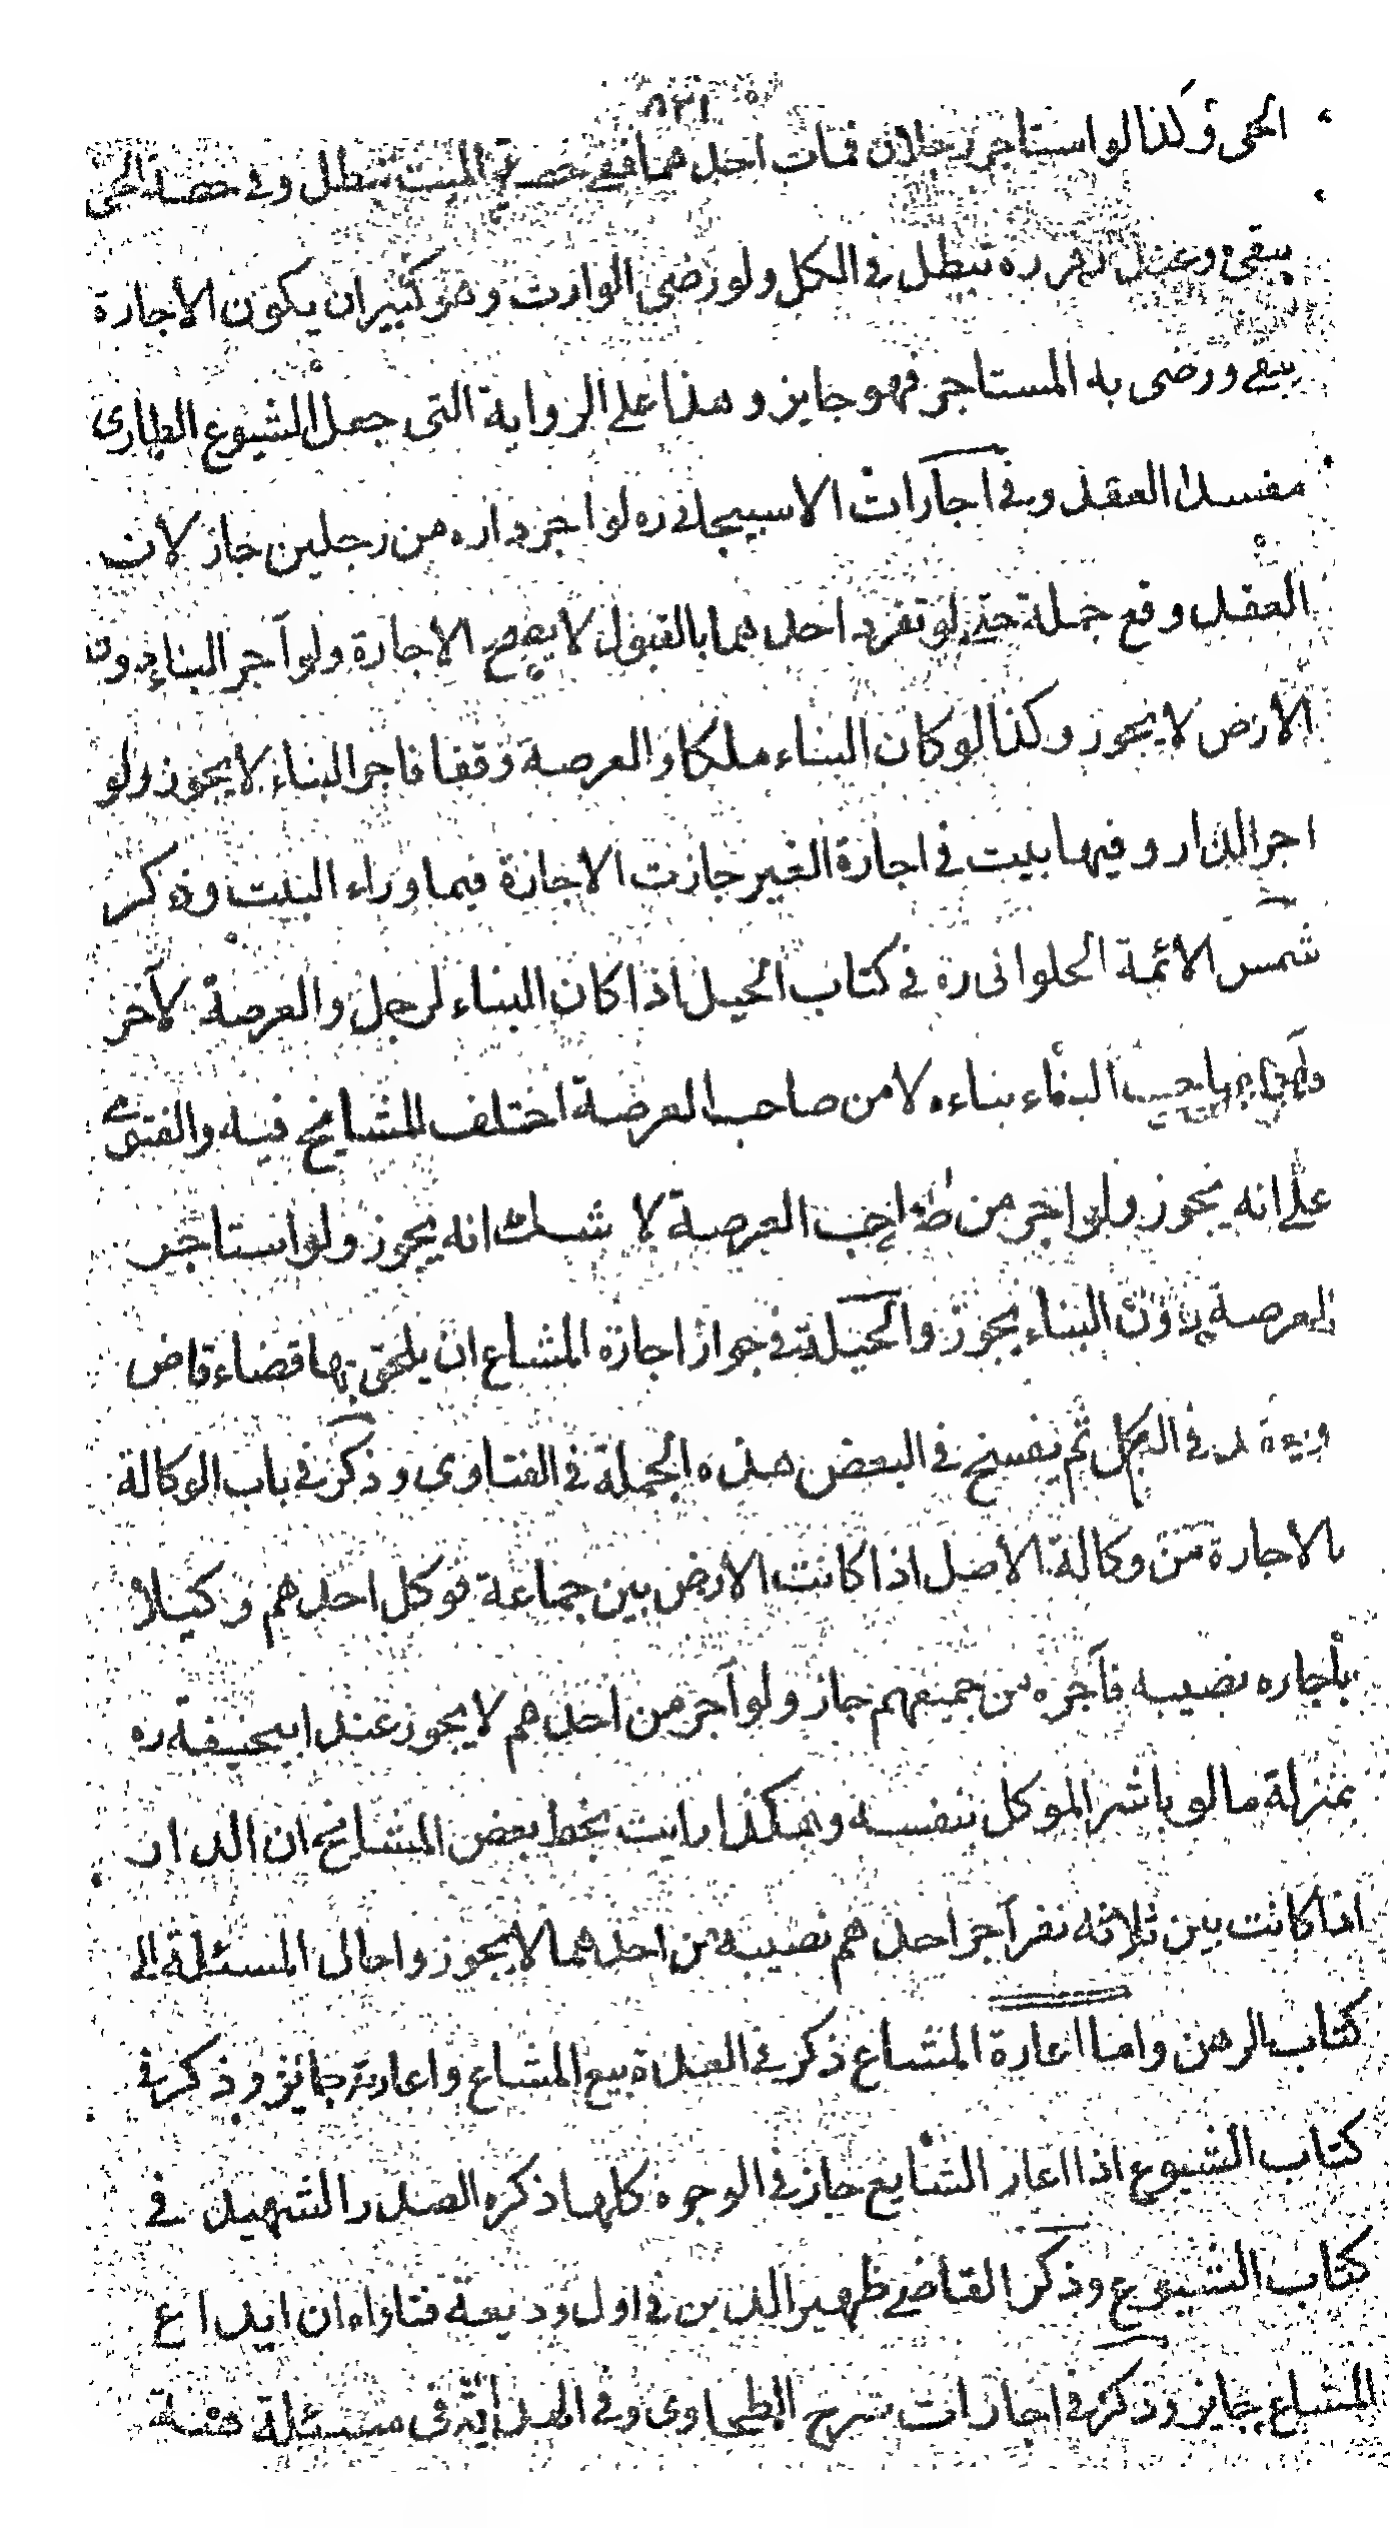 ٨٣١
الحى وكذا لو استاجر رجلان فمات احدهما ففي حصة الميت تبطل وفى حصة الحى
يبقى وعند زفر ره تبطل فى الكل ولو رضى الوارث وهو كبير ان يكون الاجارة
يبقى ورضى به المستاجر فهو جايز وهذا على الرواية التى جعل الشيوع الطارى
مفسدا العقد وفى اجارات الاسبيجابى ره لو اجر داره من رجلين جاز لان
العقد وقع جملة حتى لو تفرد احدهما بالقبول لا يصح الاجارة ولو آجر البناء دون
الارض لا يجوز وكذا لو كان البناء ملكا والعرصة وقفا فاجر البناء لا يجوز ولو
اجر الدار وفيها بيت فى اجارة الغير جازت الاجازة فيما وراء البيت وذكر
شمس الائمة الحلوانى ره فى كتاب الحيل اذا كان البناء لرجل والعرصة لآخر
صاحب البناء بناءه لا من صاحب العرصة اختلف المشايخ فيه والفتوى
على انه يجوز ولو اجر من صاحب العرصة لا شك انه يجوز ولو استاجر
العرصة بدون البناء يجوز والحيلة فى جواز اجازة المشاع ان يلحق بها قضاء قاض
فى الكل ثم يفسخ فى البعض هذه الجملة فى الفتاوى وذكر فى باب الوكالة
بالاجارة من وكالة الاصل اذا كانت الارض بين جماعة فوكل احدهم وكيلا
باجاره نصيبه فآجره من جميعهم جاز ولو آجر من احدهم لا يجوز عند ابيحنيفة ره
بمنزلة ما لو باشر الموكل بنفسه وهكذا رايت بخط بعض المشايخ ان الدار
اذا كانت بين ثلاثه نفر آجر احدهم نصيبه من احدهما لا يجوز واحال المسئلة الى
كتاب الرهن واما اعارة المشاع ذكر فى العدة بيع المشاع واعارته جائز وذكر فى
كتاب الشيوع اذا اعار الشايع جاز فى الوجوه كلها ذكره الصدر الشهيد فى
كتاب الشيوع وذكر القاضى ظهير الدين فى اول وديعة فتاواه ان ايداع
المشاع جايز وذكر فى اجازات شرح الطحاوى وفى الهداية فى مسئلة هبة